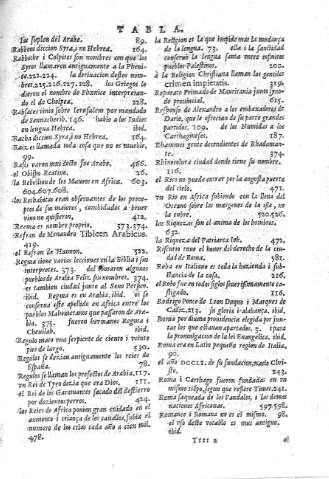 TABLA.
los suplen del Arabe. 89.
Rabboni diccion Syra, no Hebrea. 164.
Rabboche i Culpices son nombres con que los
Syros llamaron antiguamente a la Pheni-
cia, 222.224. la derivacion destos nom-
bres, 225.226.227.228. los Griegos le
dieron el nombre de Phenice interpretan-
do el de Cholpea, 228.
Rabsaces vinia sobre Ierusalem por mandado
de Senacherib, 146. hablò a los Iudios
en lengua Hebrea. ibid.
Racha diccion Syra, i no Hebrea. 164.
Rain es llamada toda cosa que no es mueble.
99.
Rasis varon mui docto fue Arabe. 466.
al Obispo Reatino. 26.
la Rebelion de los Maures en Africa. 603.
604.607.608.
los Rechabitas eran observantes de los prece-
ptos de su maiores, combidados a bever
vino no quisieron, 412.
Reema es nombre proprio. 373.374.
Refran de Menandro Tibicen Arabicus.
419.
el Refran de Hannon, 322.
Regma tiene varias lecciones en la Biblia i sus
interpretes. 373. del llamaron algunos
pueblos de Arabia Felix sus nombres. 374.
es tambien ciudad junto al Seno Persico.
ibid. Regma es en Arabia, ibid. si se
conserva este apellido en Africa entre los
pueblos Mahometanos que passaron de Ara-
bia. 375. fueron hermanos Regma i
Chamilab. ibid.
Regulo mató una serpiente de ciento i veinte
pies de largo. 130.
Regulos se llamaron antiguamente los reies de
España. 78.
Regulos se llaman los prefectos de Arabia, 117.
vn Rei de Tyro dezia que era Dios. 111.
el Rei de los Garamantas sacado del destierro
por dozientos perros. 424.
los Reies de Africa ponian gran cuidado en el
aumento i crianza de los cavallos, subia el
numero de las crias cada año a cien mil.
478.
la Religion es la que impidió mas la mudança
de la lengua. 73. ella i la santidad
conservò la lengua santa entre infinitos
pueblos Palestinos. 200.
à la Religion Christiana llaman los gentiles
crimen impietatis. 319.
Reparase Primado de Mauritania junto pro-
de provincial. 615.
Respuesta de Alexandro a los embaxadores de
Dario, que le ofrecian de su parte grandes
partidos. 109. de los Numidas a los
Carthagineses. 187.
Rhamnes gente descendientes de Rhadaman-
te. 374.
Rhinocolura ciudad donde tiene su nombre.
116.
el Rico no puede entrar por la angosta puerta
del cielo, 471.
vn Rio en Africa subiendo con la llena del
Oceano sobre las margenes de la iz-
la cubre. 520.526.
las Riquezas son el animo de los hombres.
632.
la Riqueza del Patriarca Iob. 472.
Risistho tuvo el honor del derecho de la ciu-
dad de Roma. 581.
Roba en Italiano es toda la hazienda i sub-
stancia de la casa. 216.
el Robo fue en todos siglos severissimamente ca-
stigado. 116.
Rodrigo Ponce de Leon Duque i Marques de
Cadiz, 213. su gloria i alabança, ibid.
Roma por divina providencia elegida por jun-
tar las que estavan apartados. 3. i para
la promulgacion de la lei Euangelica, ibid.
Roma era en Latio pequeña region de Italia,
90.
el año DCCLI. de su fundacion, nació Chri-
sto. 243.
Roma i Carthago fueron fundadas en un
mismo tiempo, segun que refiere Timeo, 241.
Roma saqueada de los Vandalos, i las demas
naciones Africanas. 597.598.
Romance i Romano es el mismo. 98.
el uso deste vocablo es mui antiguo.
ibid.
Tttt 2 el